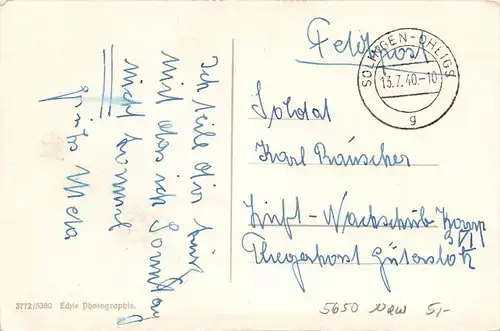 Ich teile dir kurz
mit das ich Sonntag
nicht komme
grüße Meta
Feldpost
SOLINGEN-OHLIGS
13.7.40.-10
g
Soldat
Karl Räuscher
Luft-Nachschub Komp
3/VI
Fliegerhorst Gütersloh
3772/5380 Echte Photographie.
5650 5,-